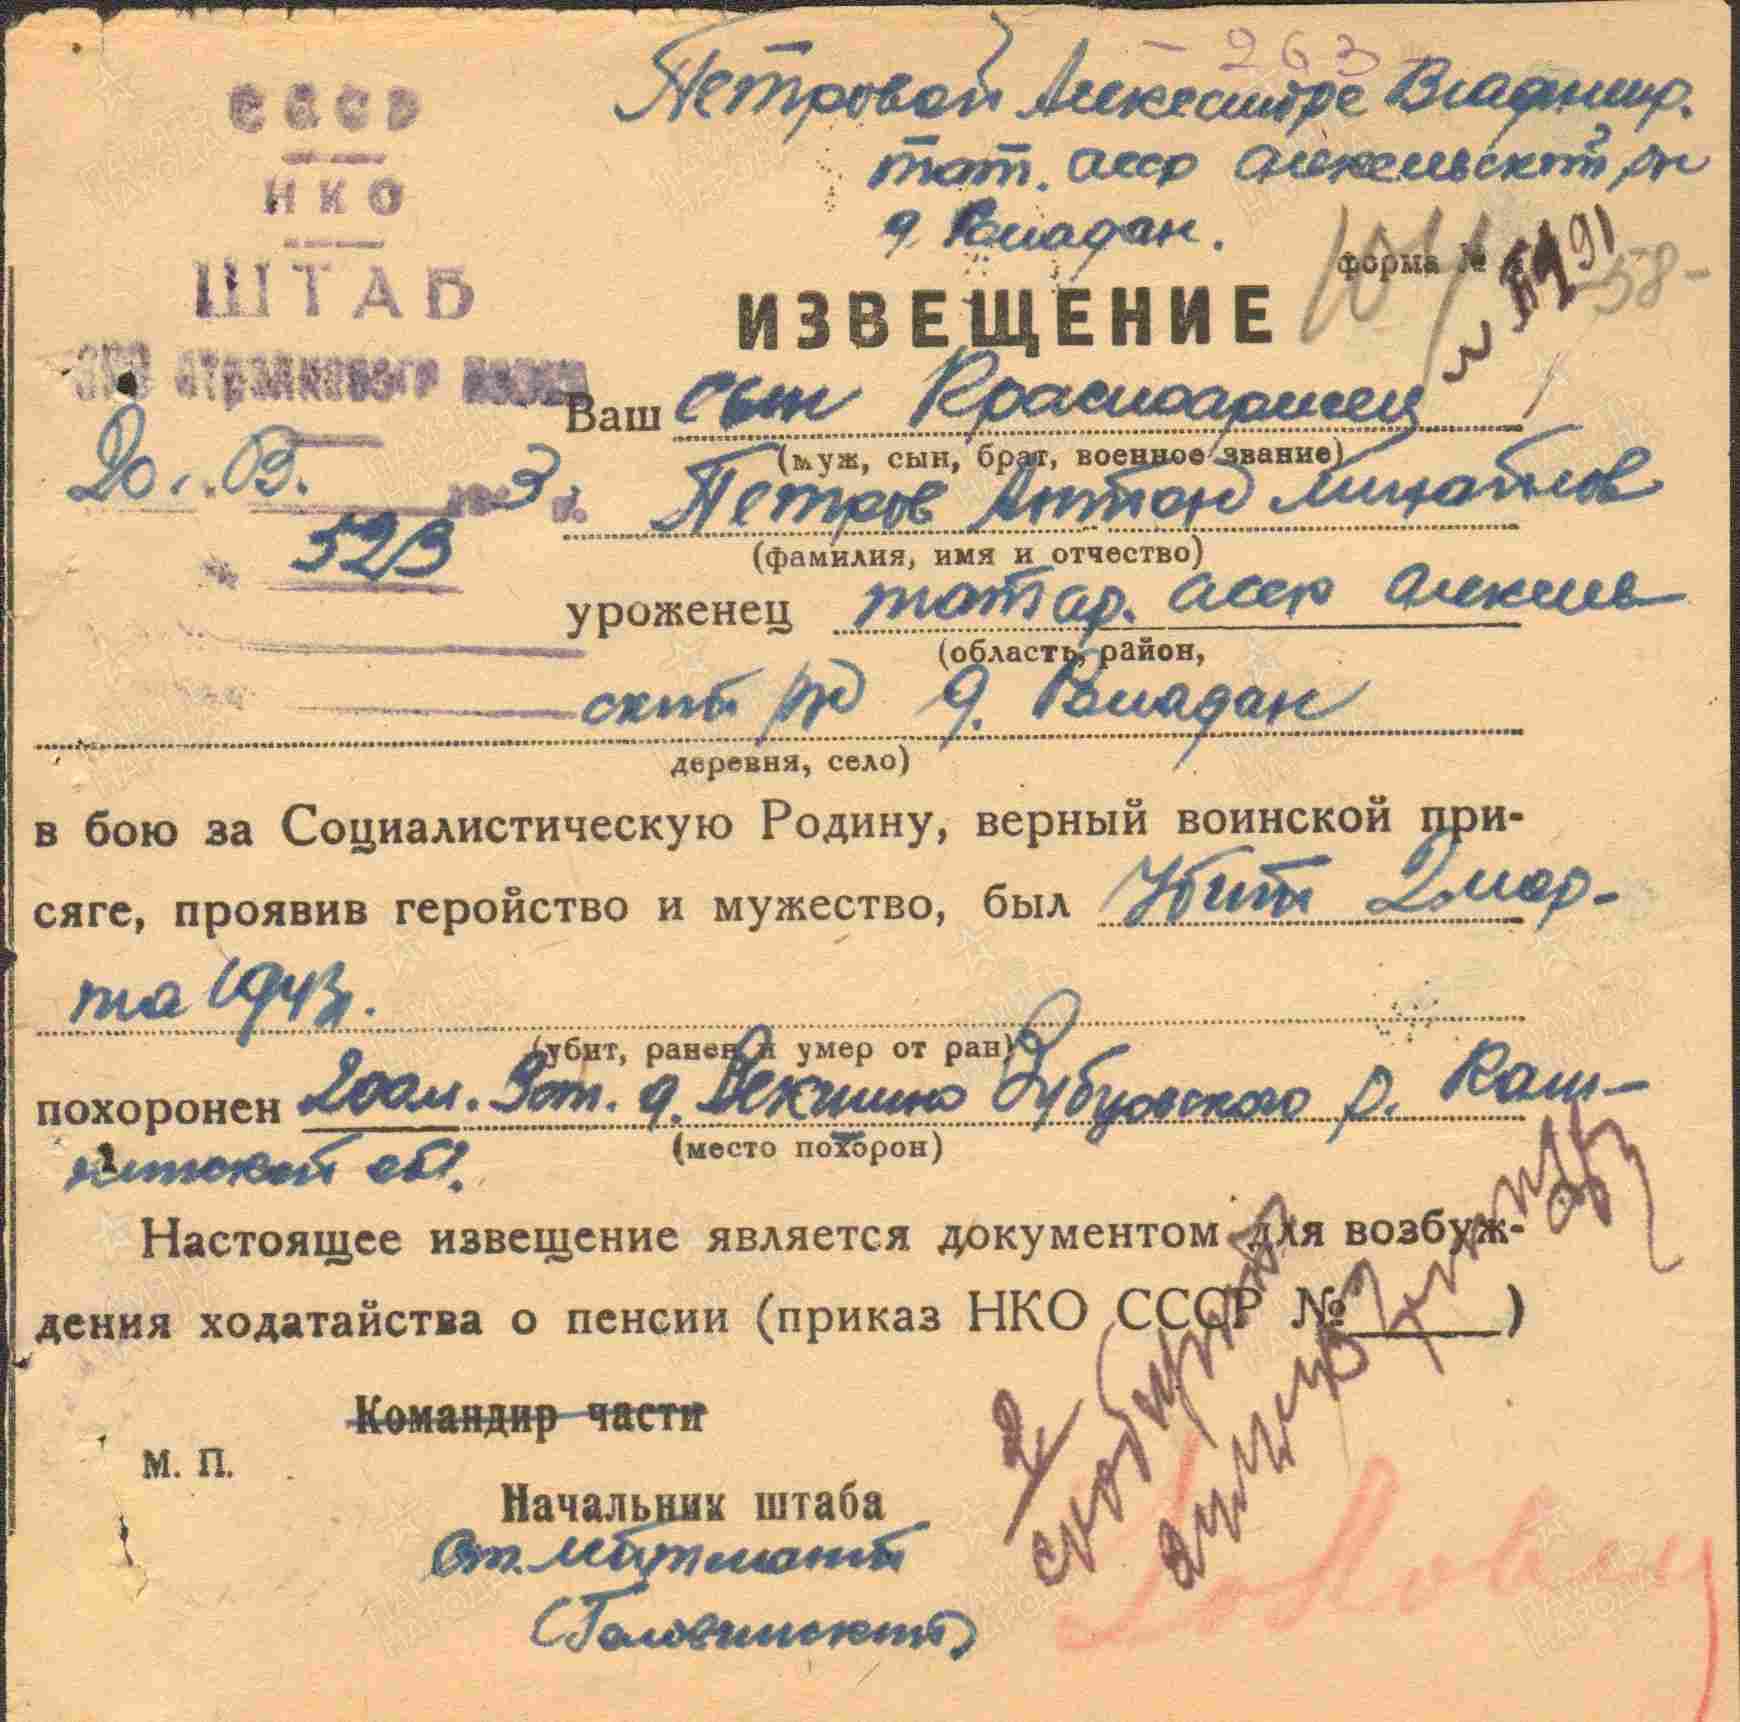 263
Петровой Александре Владимир.
тат. асср Алексеевский рн
д. Владан.
СССР
НКО
ШТАБ
стрелкового полка
форма №
58-
ИЗВЕЩЕНИЕ
20 . 03. 3
523
Ваш сын Красноармеец
(муж, сын, брат, военное звание)
Петров Антон Михайлов
(фамилия, имя и отчество)
уроженец татар. асср Алексеев
(область, район,
ский рн д. Владан
деревня, село)
в бою за Социалистическую Родину, верный воинской при-
сяге, проявив геройство и мужество, был Убит 2 мар-
та 1943.
(убит, ранен и умер от ран)
похоронен 200 м. Зап. д. Векшино Зубцовского р. Кали-
нинской обл.
(место похорон)
Настоящее извещение является документом для возбуж-
дения ходатайства о пенсии (приказ НКО СССР № )
Командир части
М. П.
Начальник штаба
Ст. лейтенант
(Головинский)